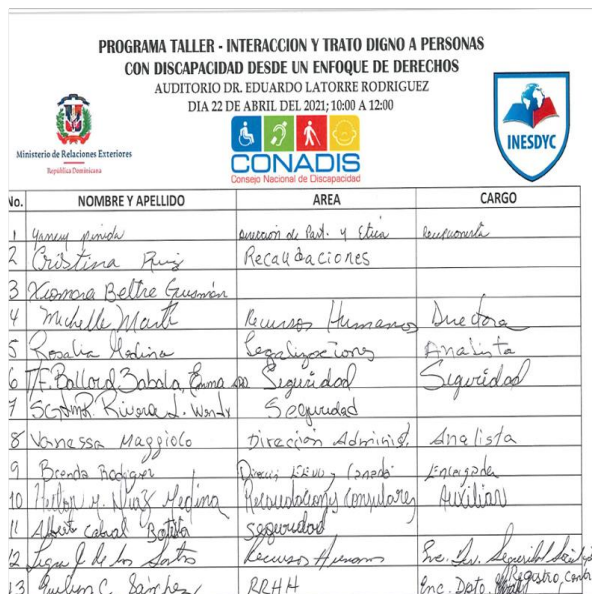 PROGRAMA TALLER - INTERACCION Y TRATO DIGNO A PERSONAS
CON DISCAPACIDAD DESDE UN ENFOQUE DE DERECHOS
AUDITORIO DR. EDUARDO LATORRE RODRIGUEZ
DIA 22 DE ABRIL DEL 2021; 10:00 A 12:00
Ministerio de Relaciones Exteriores
República Dominicana
CONADIS
Consejo Nacional de Discapacidad
INESDYC
No. NOMBRE Y APELLIDO AREA CARGO
1 Dirección de y Etica
2 Cristina Ruiz Recaudaciones
3 Xiomara Beltre Guzmán
4 Michelle Recursos Humanos Directora
5 Rosalia Medina Legalizaciones Analista
6 Ballord Zabala, Emma Seguridad Seguridad
7 Rivera Wendy Seguridad
8 Vanessa Maggiolo Dirección Administ. Analista
9 Brenda Rodriguez Encargada
10 Medina Consulares Auxiliar
11 Albert Cabral Batista seguridad
12 de los Santos Recursos Humanos Enc. Seguridad
13 C. Sánchez RRHH Enc. Dpto. Registro,